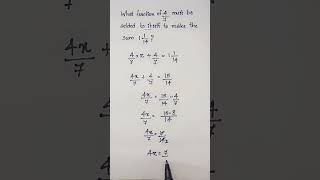 What fraction of 4/7 must be
added to itself to make the
sum 1 1/14 ?
4/7 × x + 4/7 = 1 1/14
4x/7 + 4/7 = 15/14
4x/7 = 15/14 - 4/7
4x/7 = 15-8/14
4x/7 = 7/14 2
4x = 7/
4x/7